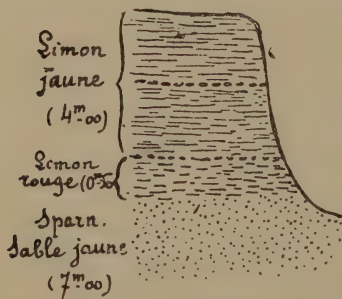 Limon
jaune
(4m00)
Limon
rouge
Sparn.
Sable jaune
(7m00)